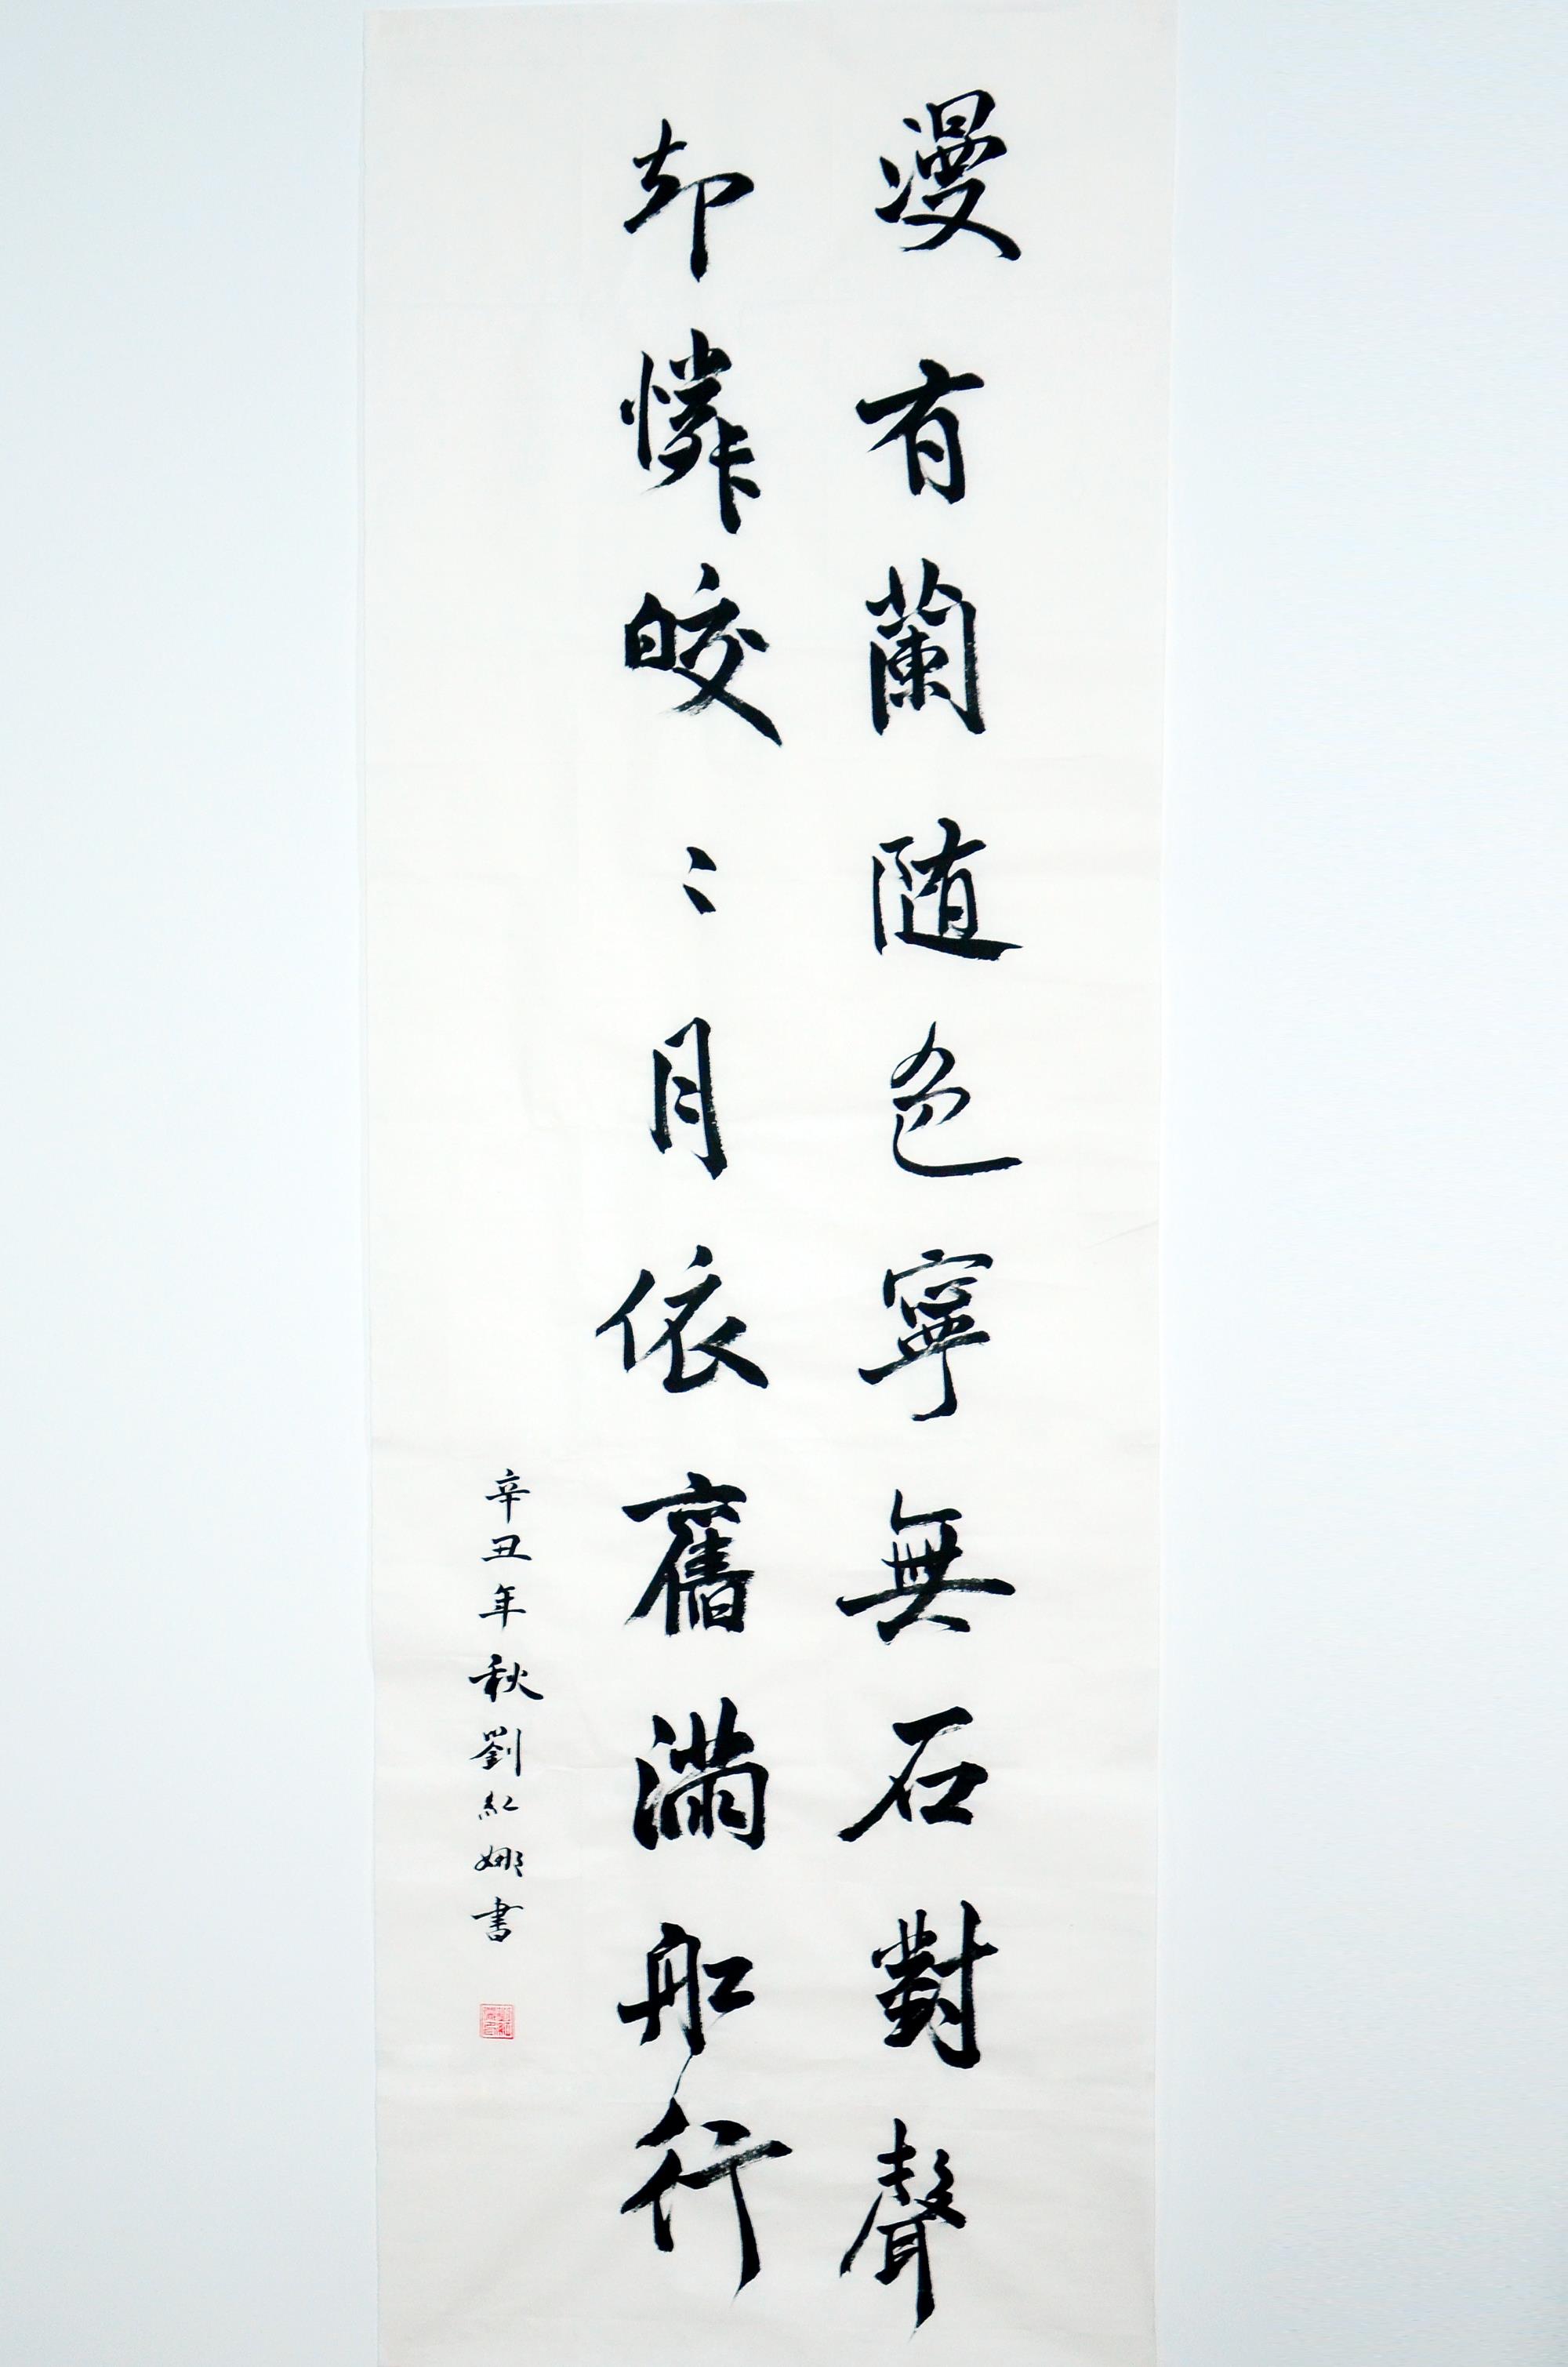 漫有蘭随色寧無石對聲
却憐皎〻月依舊滿船行
辛丑年秋劉紅娜書